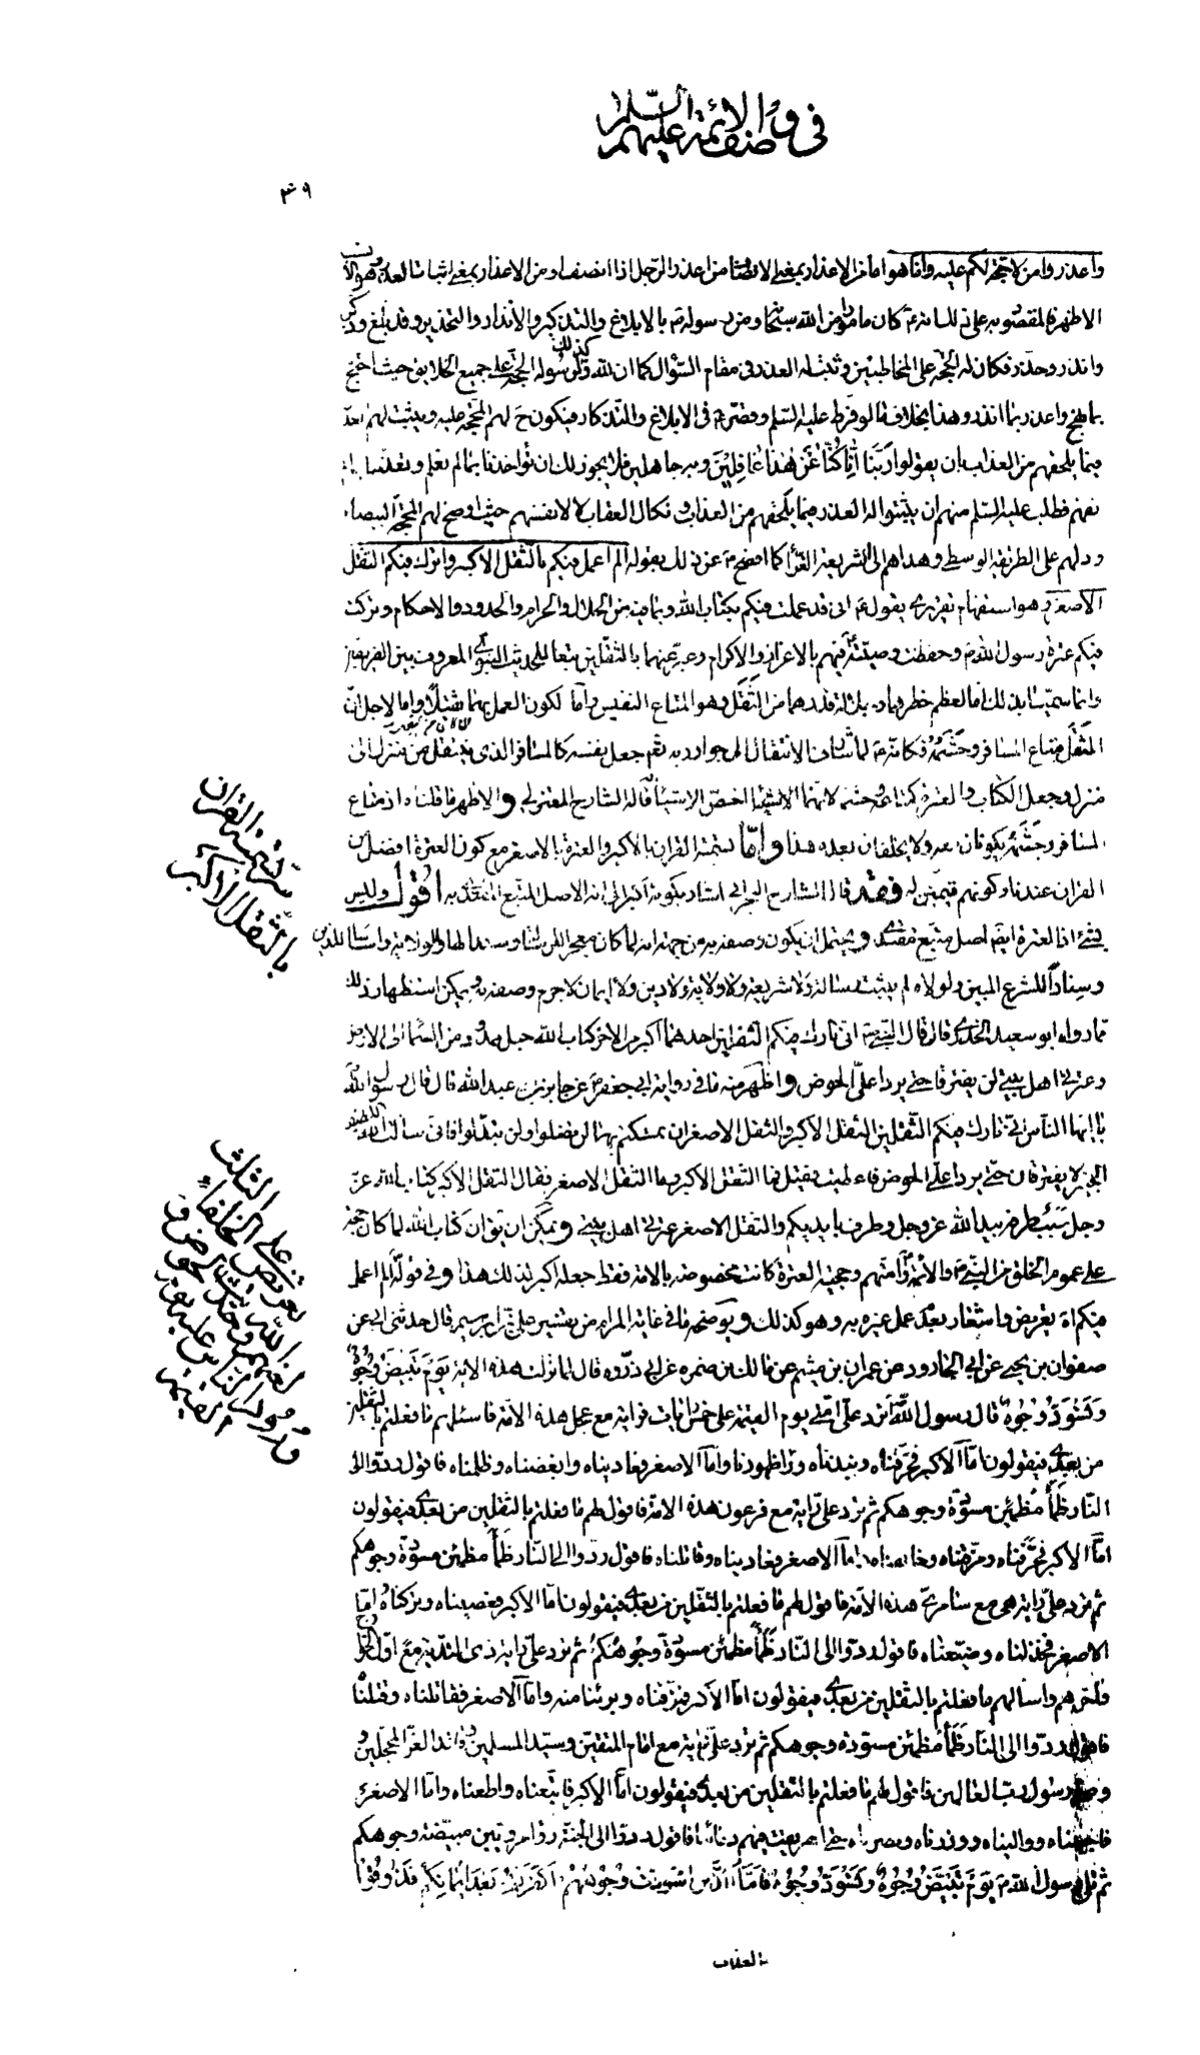 في وصف الائمة عليهم السلام
٣٩
واعذروا من لا حجة لكم عليه وانا هو اما من الاعذار بمعنى الانصاف من اعذر الرجل اذا انصف او من الاعذار بمعنى اثبات العذر وهو الا
الاظهر المقصود به على لسانه كان مامورا من الله سبحانه ومن رسوله بالابلاغ والتذكير والانذار والتحذير وقد بلغ وذكر
وانذر وحذر فكان له الحجة على المخاطبين وثبت له العذر في مقام السؤال كما ان لله ولرسوله كذلك الحجة على جميع الخلايق حيث احتج
بما نهج واعذر بما انذر وهذا بخلاف ما لو فرط عليه السلم وقصر في الابلاغ والتذكار فيكون ح لهم الحجة عليه ويثبت لهم العذر
فيما يلحقهم من العذاب بان يقولوا ربنا انا كنا عن هذا غافلين وبه جاهلين فلا يجوز لك ان تؤاخذنا بما لم نعلم وتعذبنا بما لم
نفهم فطلب عليه السلم منهم ان يثبتوا له العذر فيما يلحقهم من العذاب ونكال العقاب لا لانفسهم حيث اوضح لهم المحجة البيضاء
ودلهم على الطريقة الوسطى وهداهم الى الشريعة الغراء كما افصح عن ذلك بقوله الم اعمل فيكم بالثقل الاكبر واترك فيكم الثقل
الاصغر هو استفهام تقريري يقول انى قد عملت فيكم بكتاب الله وبما فيه من الحلال والحرام والحدود والاحكام وتركت
فيكم عترة رسول الله وحفظت وصيته فيهم بالاعزاز والاكرام وعبر عنهما بالثقلين تبعا للحديث النبوي المعروف بين الفريقين
وانما سميتا بذلك اما لعظم خطرهما وجلالة قدرهما من الثقل وهو المتاع النفيس واما لكون العمل بهما ثقيلا واما لاجل ان
الثقل متاع المسافر وحشمه فكانه لما شارف الانتقال الى جوار ربه جعل نفسه كالمسافر الذى ينتقل من منزل الى
منزل وجعل الكتاب والعترة كمتاعه وحشمه لانهما اخص الاشياء به قاله الشارح المعتزلي والاظهر ما قلناه اذ متاع
المسافر وحشمه يكونان معه ولا يخلفان بعده هذا واما تسمية القران بالاكبر والعترة بالاصغر مع كون العترة افضل من
القران عندنا وكونهم قيمين له فقد قال الشارح البحراني اشار بكونه اكبر الى انه الاصل المتبع المقتدى به اقول وليس
بشئ اذ العترة ايضا اصل متبع مقتدى ويحتمل ان يكون وصفه به من جهة انه لما كان معجزا للرسالة وسندا لها والولاية واساسا للدين
وسنادا للشرع المبين ولولاه لم يثبت رسالة ولا شريعة ولا ولاية ولا دين ولا ايمان لا جرم وصفه به ويمكن استظهار ذلك
مما رواه ابو سعيد الخدري قال قال النبي اني تارك فيكم الثقلين احدهما اكبر من الاخر كتاب الله حبل ممدود من السماء الى الارض
وعترتي اهل بيتي لن يفترقا حتى يردا على الحوض واظهر منه ما في رواية ابي جعفر عن جابر بن عبدالله قال قال رسول الله
يا ايها الناس اني تارك فيكم الثقلين الثقل الاكبر والثقل الاصغر ان تمسكتم بهما لن تضلوا ولن تبدلوا فاني سالت الله اللطيف
الخبير لا يفترقان حتى يردا على الحوض فاعطيت فقيل فما الثقل الاكبر وما الثقل الاصغر فقال الثقل الاكبر كتاب الله عز
وجل سبب طرفه بيد الله عز وجل وطرف بايديكم والثقل الاصغر عترتي اهل بيتي ويمكن ان يقال ان كتاب الله لما كان حجة
على عموم الخلق من النبي والائمة وامتهم وحجية العترة كانت مخصوصة بالامة فقط جعله اكبر لذلك هذا وفي قوله الم اعمل
فيكم اه تعريض واشعار بعدم عمل غيره به وهو كذلك ويوضحه ما في غاية المرام من تفسير علي بن ابراهيم قال حدثني ابي عن
صفوان بن يحيى عن ابي الجارود عن عمران بن ميثم عن مالك بن ضمره عن ابي ذر ره قال لما نزلت هذه الاية يوم تبيض وجوه
وتسود وجوه قال رسول الله ترد على امتي يوم القيمة على خمس رايات فراية مع عجل هذه الامة فاسئلهم ما فعلتم بالثقلين
من بعدي فيقولون اما الاكبر فحرفناه ونبذناه وراء ظهورنا واما الاصغر فعاديناه وابغضناه وظلمناه فاقول ردوا الى
النار ظمأ مظمئين مسودة وجوهكم ثم ترد على راية مع فرعون هذه الامة فاقول لهم ما فعلتم بالثقلين من بعدي فيقولون
اما الاكبر فحرفناه ومزقناه وخالفناه واما الاصغر فعاديناه وقاتلناه فاقول ردوا الى النار ظمأ مظمئين مسودة وجوهكم
ثم ترد على راية هي مع سامري هذه الامة فاقول لهم ما فعلتم بالثقلين من بعدي فيقولون اما الاكبر فعصيناه وتركناه اما
الاصغر فخذلناه وضيعناه فاقول ردوا الى النار ظمأ مظمئين مسودة وجوهكم ثم ترد على راية ذي الثدية مع اول الخوارج
واخرهم واسالهم ما فعلتم بالثقلين من بعدي فيقولون اما الاكبر فمزقناه وبرئنا منه واما الاصغر فقاتلناه وقتلناه
فاقول ردوا الى النار ظمأ مظمئين مسودة وجوهكم ثم ترد على راية مع امام المتقين وسيد المسلمين وقائد الغر المحجلين
وصي رسول رب العالمين فاقول لهم ما فعلتم بالثقلين من بعدي فيقولون اما الاكبر فاتبعناه واطعناه واما الاصغر
فاحببناه وواليناه ووزرناه ونصرناه حتى اهريقت فيهم دمائنا فاقول ردوا الى الجنة رواء مرويين مبيضة وجوهكم
ثم تلا رسول الله يوم تبيض وجوه وتسود وجوه فاما الذين اسودت وجوههم اكفرتم بعد ايمانكم فذوقوا
العذاب
سر تسمية القران
بالثقل الاكبر